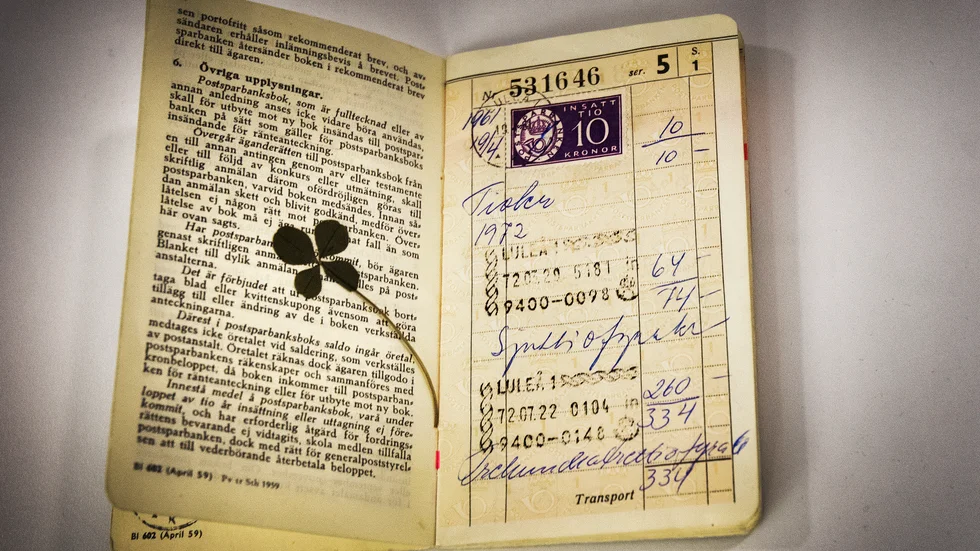 sen portofritt såsom rekommenderat brev, och av-
sändaren erhåller inlämningsbevis å brevet. Post-
sparbanken återsänder boken i rekommenderat brev
direkt till ägaren.
6. Övriga upplysningar.
Postsparbanksbok, som är fulltecknad eller av
annan anledning anses icke vidare böra användas,
skall för utbyte mot ny bok insändas till postspar-
banken på sätt som gäller för postsparbanksboks
insändande för ränteanteckning.
Övergår äganderätten till postsparbanksbok från
en till annan antingen genom arv eller testamente
eller till följd av konkurs eller utmätning, skall
skriftlig anmälan därom ofördröjligen göras till
postsparbanken, varvid boken medsändes. Innan så-
dan anmälan skett och blivit godkänd, medför över-
låtelsen ej någon rätt mot banken. Över-
låtelse av bok må ej i fall än som
här ovan sagts.
Har postsparbanksbok förkommit, bör ägaren
genast skriftligen anmäla postsparbanken.
Blanket till dylik anmälan på post-
anstalterna.
Det är förbjudet att ur postsparbanksbok bort-
taga blad eller kvittenskupong ävensom att göra
tillägg till eller ändring av de i boken verkställda
anteckningarna.
Därest i postsparbanksboks saldo ingår öretal,
medtages icke öretalet vid saldering, som verkställes
av postanstalt. Öretalet räknas dock ägaren tillgodo i
postsparbankens räkenskaper och sammanföres med
kronbeloppet, då boken inkommer till postsparban-
ken för ränteanteckning eller för utbyte mot ny bok.
Innestå medel å postsparbanksbok, vara under
loppet av tio år insättning eller uttagning ej före-
kommit, och har erforderlig åtgärd för fordrings-
rättens bevarande ej vidtagits, skola medlen tillfalla
postsparbanken, dock med rätt för generalpoststyrel-
sen att till vederbörande återbetala beloppet.
Bl 602 (April 59) Pv er Sth 1959
Bl 602 (April 59)
Nr 531646 ser. 5 S. 1
1961
19/4
INSATT
TIO
10
KRONOR
10
10 –
Tioker
1972
LULEÅ 1
72.07.20 5181
64 –
9400-0098
74 –
LULEÅ 1
260 –
72.07.22 0104
334
9400-0148
334
Transport